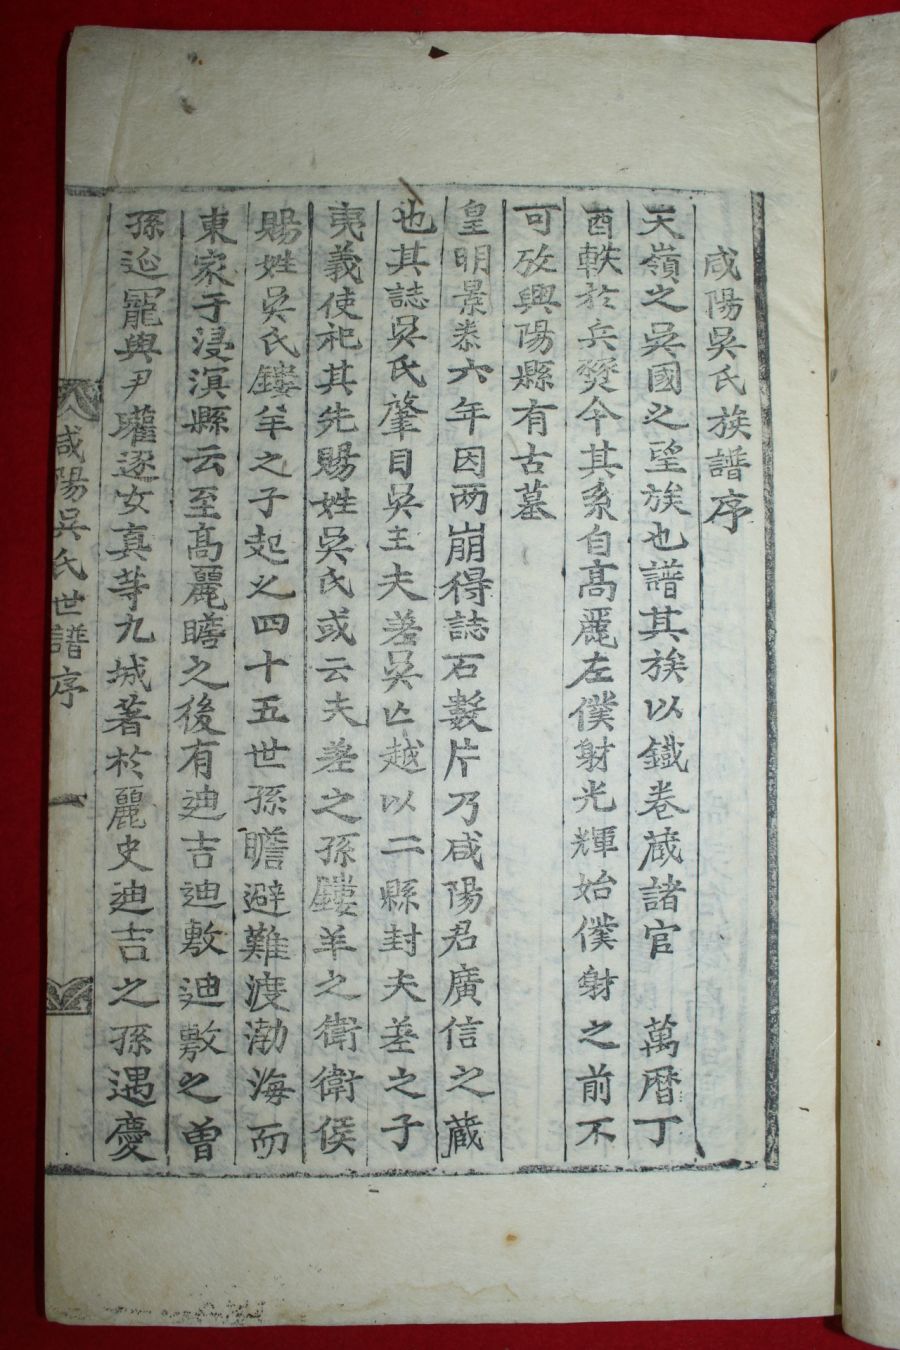 咸陽吳氏族譜序
天嶺之吳國之望族也譜其族以鐵卷蔵諸官　萬暦丁
酉軼於兵燹今其系自高麗左僕射光輝始僕射之前不
可攷興陽縣有古墓
皇明景泰六年因雨崩得誌石數片乃咸陽君廣信之蔵
也其誌吳氏肇目吳主夫差吳亡越以二縣封夫差之子
夷義使祀其先賜姓吳氏或云夫差之孫鏤羊之衛衛侯
賜姓吳氏鏤羊之子起之四十五世孫瞻避難渡渤海而
東家于浸溟縣云至高麗瞻之後有迪吉迪敷迪敷之曽
孫延寵與尹瓘逐女真等九城著於麗史迪吉之孫遇慶
咸陽吳氏世譜序　一